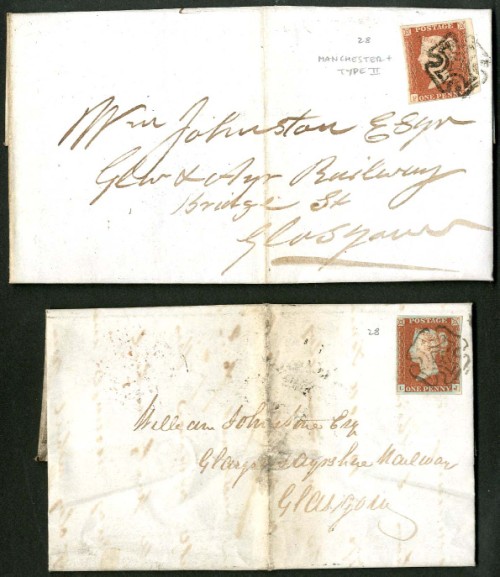 28
MANCHESTER +
TYPE II
POSTAGE
ONE PENNY
Wm Johnston Esqr
Glw & Ayr Railway
Bridge St
Glasgow
28
POSTAGE
ONE PENNY
William Johnstone Esq
Glasgow & Ayrshire Railway
Glasgow